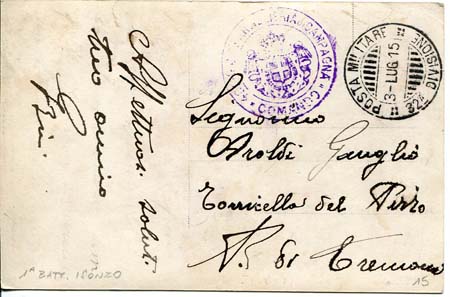 Affettuosi saluti
tuo amico
Gin.
POSTA MILITARE
3 - LUG. 15
32ª DIVISIONE
CAMPAGNA
COMANDO
Signorino
Aroldi Ganglio
Torricella del Pizzo
P. di Cremona
1ª BATT. ISONZO
15